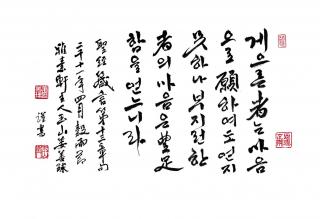 게으른 者는 마음
으로 願하여도 얻지
못하나 부지런한
者의 마음은 豊足
함을 얻느니라
聖經 箴言 第十三章 句
二千十一年 四月 穀雨節
主人 玉山 姜善
謹書